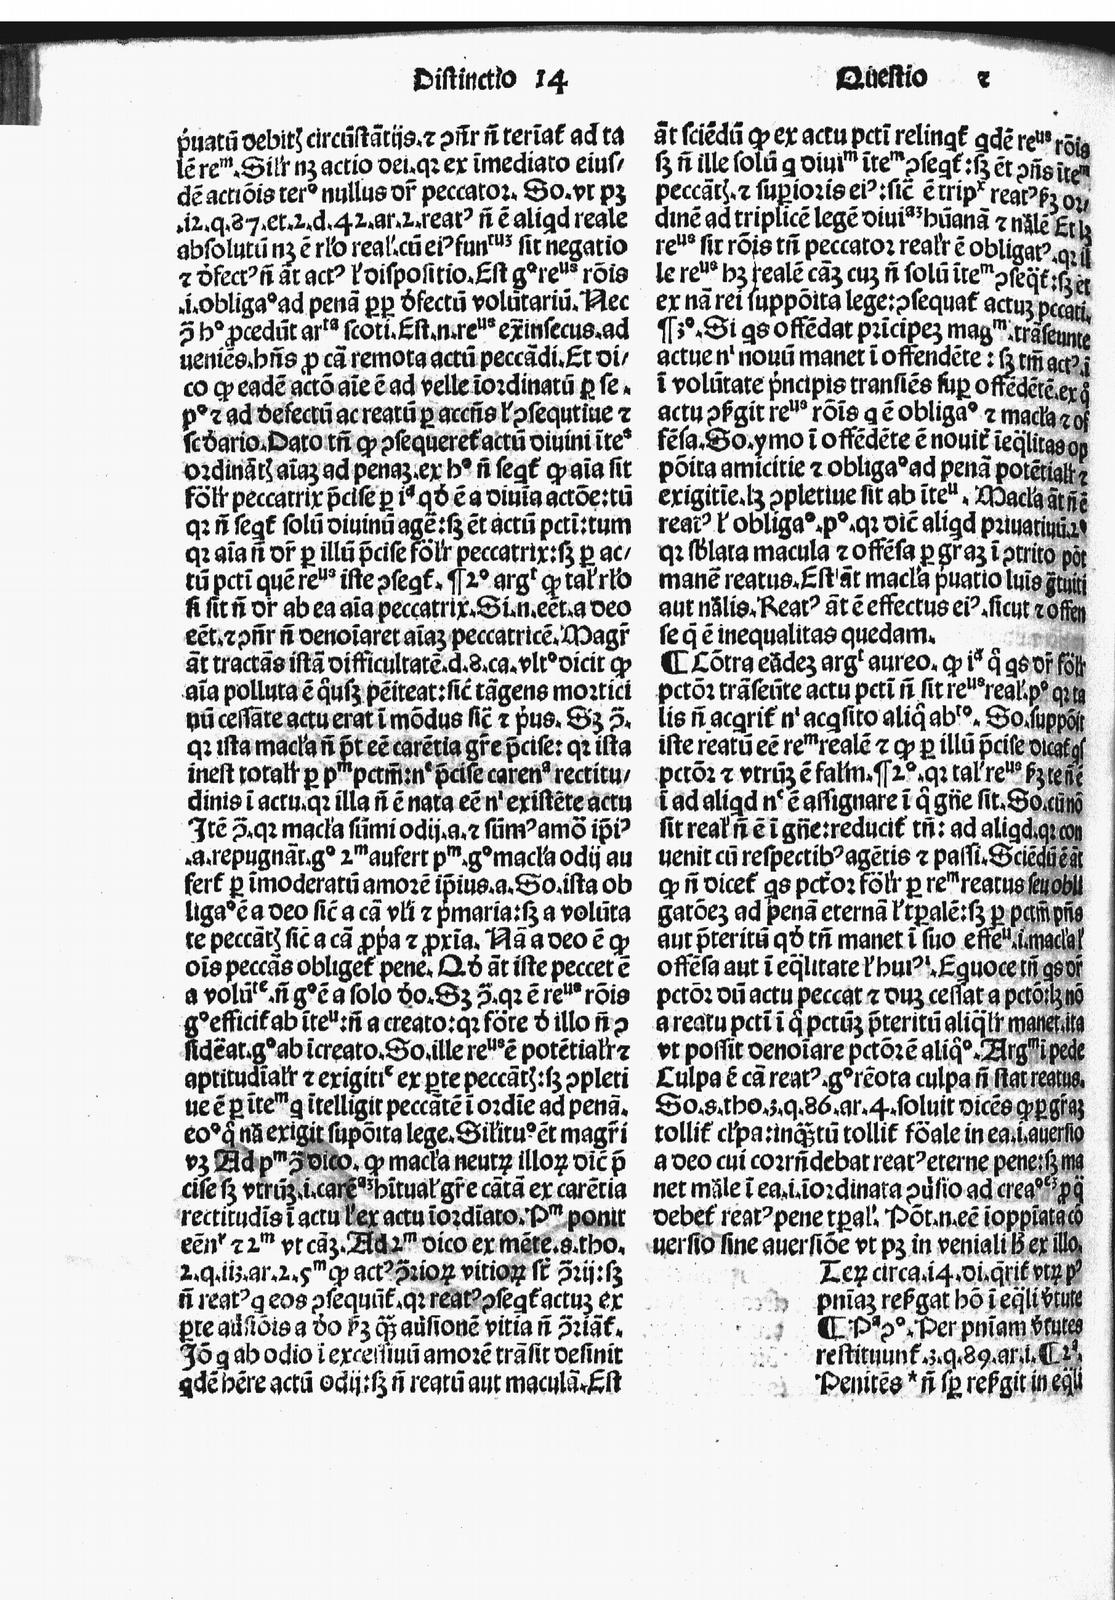 Distinctio 14 Questio 2
p̓uatū debitꝭ circūstātijs.⁊ ꝯñr ñ teriat̄ ad ta
lē reᵐ. Silr̄ nꝫ actio dei.qꝛ ex īmediato eius/
dē actiōis terᵒ nullus dr̄ peccator. So. vt pꝫ
.12.q.87.et.2.d.42.ar.2.reatꝰ ñ ē aliqd reale
absolutū nꝫ ē rl̓o real̓.cū eiꝰ funᵗᵘᵌ sit negatio
⁊ d̓fectꝰ ñ āt actꝰ l̓ dispositio. Est gᵒ reᵘˢ rōis
.i.obligaᵒ ad penā ꝓp d̓fectū volūtariū. Nec
ꝯ̄ hᵒ ꝓcedūt arᵗᵃ scoti. Est.n.reᵘˢ exīnsecus.ad
ueniēs.hñs ꝓ cā remota actū peccādi. Et di/
co ꝙ eadē actō aīe ē ad velle īordinatū ꝑ se.
pᵒ ⁊ ad defectū ac reatū ꝑ accñs l̓ ꝯsequtiue ⁊
scd̓ario. Dato tñ ꝙ ꝯsequeret̄ actū diuini īteᵃ
ordinātꝭ aīaꝫ ad penaꝫ.ex hᵒ ñ seqt̄ ꝙ aīa sit
fōlr̄ peccatrix p̄cise ꝑ iᵈ qd̓ ē a diuīa actōe:tū
qꝛ ñ seqt̄ solū diuinū agē:sꝫ ēt actū pctī:tum
qꝛ aīa ñ dr̄ ꝑ illū p̄cise fōlr̄ peccatrix:sꝫ ꝑ ac/
tū pctī quē reᵘˢ iste ꝯseqt̄. ¶2ᵒ argᵗ ꝙ tal̓ rl̓o
si sit ñ dr̄ ab ea aīa peccatrix. Si.n.eēt.a deo
eēt.⁊ ꝯñr ñ denoīaret aīaꝫ peccatricē. Magr̄
āt tractās istā difficultatē.d.8.ca.vltᵒ dicit ꝙ
aīa polluta ē q̄usꝫ pēiteat:sic̄ tāgens mortici
nū cessāte actu erat ī mōdus sic̄ ⁊ p̓us. Sꝫ ꝯ̄.
qꝛ ista macl̓a ñ p̄t eē carētia gr̄e p̄cise: qꝛ ista
inest totalr̄ ꝑ pᵐ pctm̄:nᶜ p̄cise carenᵃ rectitu/
dinis ī actu.qꝛ illa ñ ē nata eē nⁱ existēte actu
Itē ꝯ̄.qꝛ macl̓a sūmi odij.a.⁊ sūmꝰ amō ip̄iꝰ
.a.repugnāt.gᵒ 2ᵐ aufert pᵐ.gᵒ macl̓a odij au
fert̄ ꝑ īmoderatū amorē ip̄ius.a. So.ista ob
ligaᵒ ē a deo sic̄ a cā vl̓i ⁊ p̓maria:sꝫ a volūta
te peccātꝭ sic̄ a cā ꝓp̄a ⁊ ꝓxīa. Nā a deo ē ꝙ
oīs peccās obliget̄ pene. Qd̓ āt iste peccet ē
a volūᵗᵉ.ñ gᵒ ē a solo d̓o. Sꝫ ꝯ̄.qꝛ ē reᵘˢ rōis
gᵒ efficit̄ ab īteᵘ:ñ a creato:qꝛ fōte d̓ illo ñ ꝯ
sidēat.gᵒ ab īcreato. So.ille reᵘˢ ē potētialr̄ ⁊
aptitudīalr̄ ⁊ exigitiᵉ ex ꝑte peccātꝭ:sꝫ ꝯpleti
ue ē ꝑ īteᵐ q ītelligit peccātē ī ordīe ad penā.
eoᵒ q̄ nā exigit supōita lege. Sil̓ituꝰ ēt magr̄i
vꝫ Ad pᵐ ꝯ̄ dico. ꝙ macl̓a neutꝝ illoꝝ dic̄ p̄
cise sꝫ vtrūqꝫ.i.carēᵃᵌ hītual̓ gr̄e cātā ex carētia
rectitudīs ī actu l̓ ex actu īordīato. Pᵐ ponit
eēnʳ ⁊ 2ᵐ vt cāꝫ. Ad 2ᵐ dico ex mēte.s.tho.
2.q.iiꝫ.ar.2.5ᵐ ꝙ actꝰ ꝯ̄rioꝝ vitioꝝ st̄ ꝯ̄rij:sꝫ
ñ reatꝰ q eos ꝯsequūt̄.qꝛ reatꝰ ꝯseqt̄ actuꝫ ex
ꝑte au̓siōis a d̓o s̓ꝫ q̄ꝫ au̓sionē vitia ñ ꝯ̄riāt̄.
Iō q ab odio ī excessiuū amorē trāsit desinit
qdē hēre actū odij:sꝫ ñ reatū aut maculā. Est
āt sciēdū ꝙ ex actu pctī relinqt̄ qdē reᵘˢ rōis
sꝫ ñ ille solū q diuiᵐ īteᵐ ꝯseqt̄:sꝫ ēt ꝯñs īteᵐ
peccātꝭ.⁊ suꝑioris eiꝰ:sic̄ ē tripˣ reatꝰ s̓ꝫ or/
dinē ad triplicē legē diuiᵃᵌ hūanā ⁊ nālē Et lꝫ
reᵘˢ sit rōis tñ peccator realr̄ ē obligatꝰ.qꝛ il
le reᵘˢ hꝫ realē cāꝫ cuꝫ ñ solū īteᵐ ꝯseqt̄:sꝫ et
ex nā rei suppōita lege:ꝯsequat̄ actuꝫ pccati.
¶3ᵒ. Si qs offēdat prīcipeꝫ magᵐ.trāseunte
actue nⁱ nouū manet ī offendēte:sꝫ tm̄ actꝰ.ī
ī volūtate p̓ncipis transiēs suꝑ offēdētē.ex q̄
actu ꝯs̓git reᵘˢ rōis q ē obligaᵒ ⁊ macl̓a ⁊ of
fēsa. So.ymo ī offēdēte ē nouit̄ īeq̄litas op
pōita amicitie ⁊ obligaᵒ ad penā potētialr̄ ⁊
exigitīe.lꝫ ꝯpletiue sit ab īteᵘ. Macl̓a āt ñ ē
reatꝰ l̓ obligaᵒ.pᵒ.qꝛ dic̄ aliqd priuatiuū.2ᵒ
qꝛ sb̓lata macula ⁊ offēsa ꝑ graꝫ ī ꝯtrito pōt
manē reatus. Est āt macl̓a p̓uatio luis gr̄tuiti
aut nālis. Reatꝰ āt ē effectus eiꝰ.sicut ⁊ offen
se q̄ ē inequalitas quedam.
¶ Cōtra eādeꝫ argᵗ aureo. ꝙ iᵈ q̄ qs dr̄ fōlr̄
pctōr trāseūte actu pctī ñ sit reᵘˢ real̓.pᵒ qꝛ ta
lis ñ acqrit̄ nⁱ acqsito aliq̄ abᵗᵒ. So.suppōit
iste reatū eē reᵐ realē ⁊ ꝙ ꝑ illū p̄cise dicat̄ qs
pctōr ⁊ vtrūqꝫ ē falm̄.¶2ᵒ.qꝛ tal̓ reᵘˢ s̓ꝫ te ñ ē
ī ad aliqd nᶜ ē assignare ī q̄ gn̄e sit. So.cū nō
sit real̓ ñ ē ī gn̄e:reducit̄ tñ: ad aliqd.qꝛ con
uenit cū respectibꝰ agētis ⁊ passi. Sciēdū ē āt
ꝙ ñ dicet̄ qs pctōr fōlr̄ ꝑ reᵐ reatus seu obli
gatōeꝫ ad penā eternā l̓ tꝑalē:sꝫ ꝑ pctm̄ pn̄s
aut p̄teritū qd̓ tñ manet ī suo effeᵘ.i.macl̓a l̓
offēsa aut ī eq̄litate l̓ huiꝰⁱ. Equoce tñ qs dr̄
pctōr dū actu peccat ⁊ duꝫ cessat a pctō:lꝫ nō
a reatu pctī ī q̄ pctūꝫ p̄teritū aliq̄lr̄ manet.ita
vt possit denoīare pctōrē aliq̄ᵒ. Argᵐ ī pede
Culpa ē cā reatꝰ.gᵒ rēota culpa ñ stat reatus.
So.s.tho.3.q.86.ar.4.soluit dicēs ꝙ ꝑ grāꝫ
tollit̄ cl̓pa:inq̄tū tollit̄ fōale in ea.i.auersio
a deo cui corrn̄debat reatꝰ eterne pene:sꝫ ma
net māle ī ea.i.īordinata ꝯu̓sio ad creaᵒᵉᵌ ꝓ q̄
debet̄ reatꝰ pene tꝑal̓. Pōt.n.eē īoppīata cō
uersio sine auersiōe vt pꝫ in veniali lꝫ ex illo.
Teꝝ circa.14.di.q̄rit̄ vtꝝ pꝰ
pnīaꝫ res̓gat hō ī eq̄li v̓tute
¶ Pᵃ ꝯᵒ. Per pnīam v̓tutes
restituunt̄.3.q.89.ar.i.¶2ᵃ.
Penitēs * ñ sꝑ res̓git in eq̄li